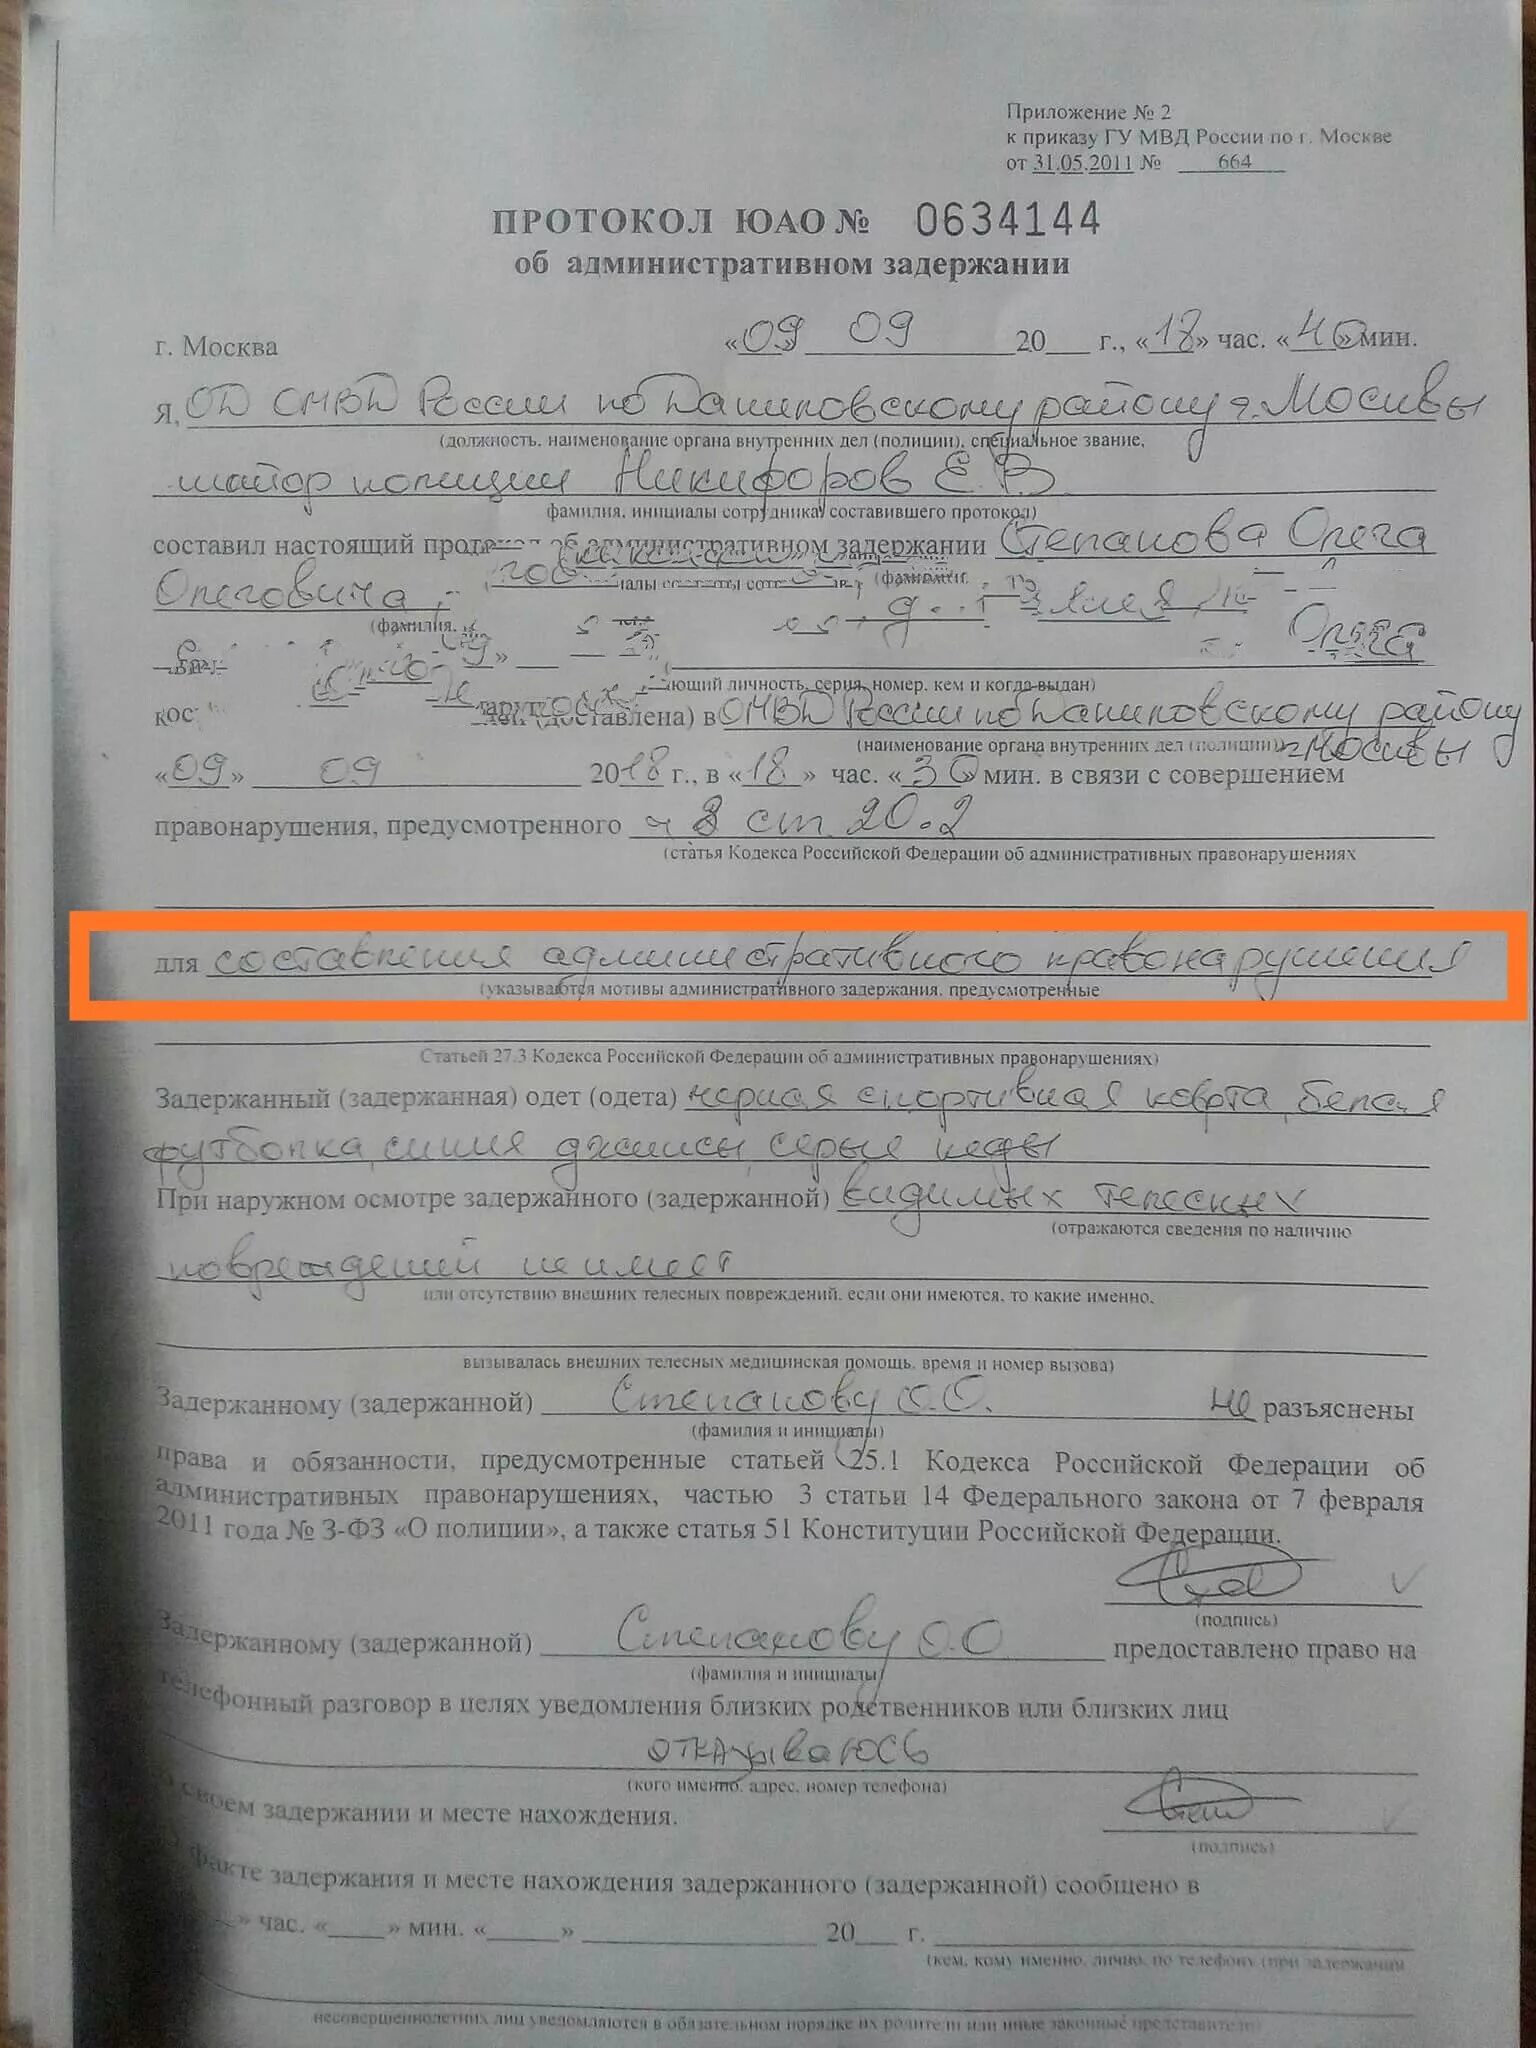 Приложение № 2
к приказу ГУ МВД России по г. Москве
от 31.05.2011 № 664
ПРОТОКОЛ ЮАО № 0634144
об административном задержании
г. Москва «09» 09 20 г., «18» час. «40» мин.
Я, ОД ОМВД России по Даниловскому району г. Москвы
(должность, наименование органа внутренних дел (полиции), специальное звание,
майор полиции Никифоров Е.В
фамилия, инициалы сотрудника, составившего протокол)
составил настоящий об административном задержании Степанова Олега
Олеговича,
(фамилия,
Олега
ющий личность, серия, номер, кем и когда выдан)
(доставлена) в ОМВД России по Даниловскому району
(наименование органа внутренних дел (полиции)) г Москвы
«09» 09 2018 г., в «18» час. «30» мин. в связи с совершением
правонарушения, предусмотренного ч 8 ст 20.2
(статья Кодекса Российской Федерации об административных правонарушениях
для составления административного правонарушения
(указываются мотивы административного задержания, предусмотренные
Статьей 27.3 Кодекса Российской Федерации об административных правонарушениях)
Задержанный (задержанная) одет (одета) черная спортивная кофта, белая
футболка, синия джинсы, серые кеды
При наружном осмотре задержанного (задержанной) видимых телесных
(отражаются сведения по наличию
повреждений не имеет
или отсутствию внешних телесных повреждений, если они имеются, то какие именно,
вызывалась внешних телесных медицинская помощь, время и номер вызова)
Задержанному (задержанной) Степанову О.О. не разъяснены
(фамилия и инициалы)
права и обязанности, предусмотренные статьей 25.1 Кодекса Российской Федерации об
административных правонарушениях, частью 3 статьи 14 Федерального закона от 7 февраля
2011 года № 3-ФЗ «О полиции», а также статья 51 Конституции Российской Федерации.
(подпись)
Задержанному (задержанной) Степанову О.О предоставлено право на
(фамилия и инициалы)
телефонный разговор в целях уведомления близких родственников или близких лиц
отказываюсь
(кого именно, адрес, номер телефона)
своем задержании и месте нахождения.
(подпись)
факте задержания и месте нахождения задержанного (задержанной) сообщено в
» час. «____» мин. «____» 20 г.
(кем, кому именно, лично, по телефону (при задержании
несовершеннолетних лиц уведомляются в обязательном порядке их родители или иные законные представители)